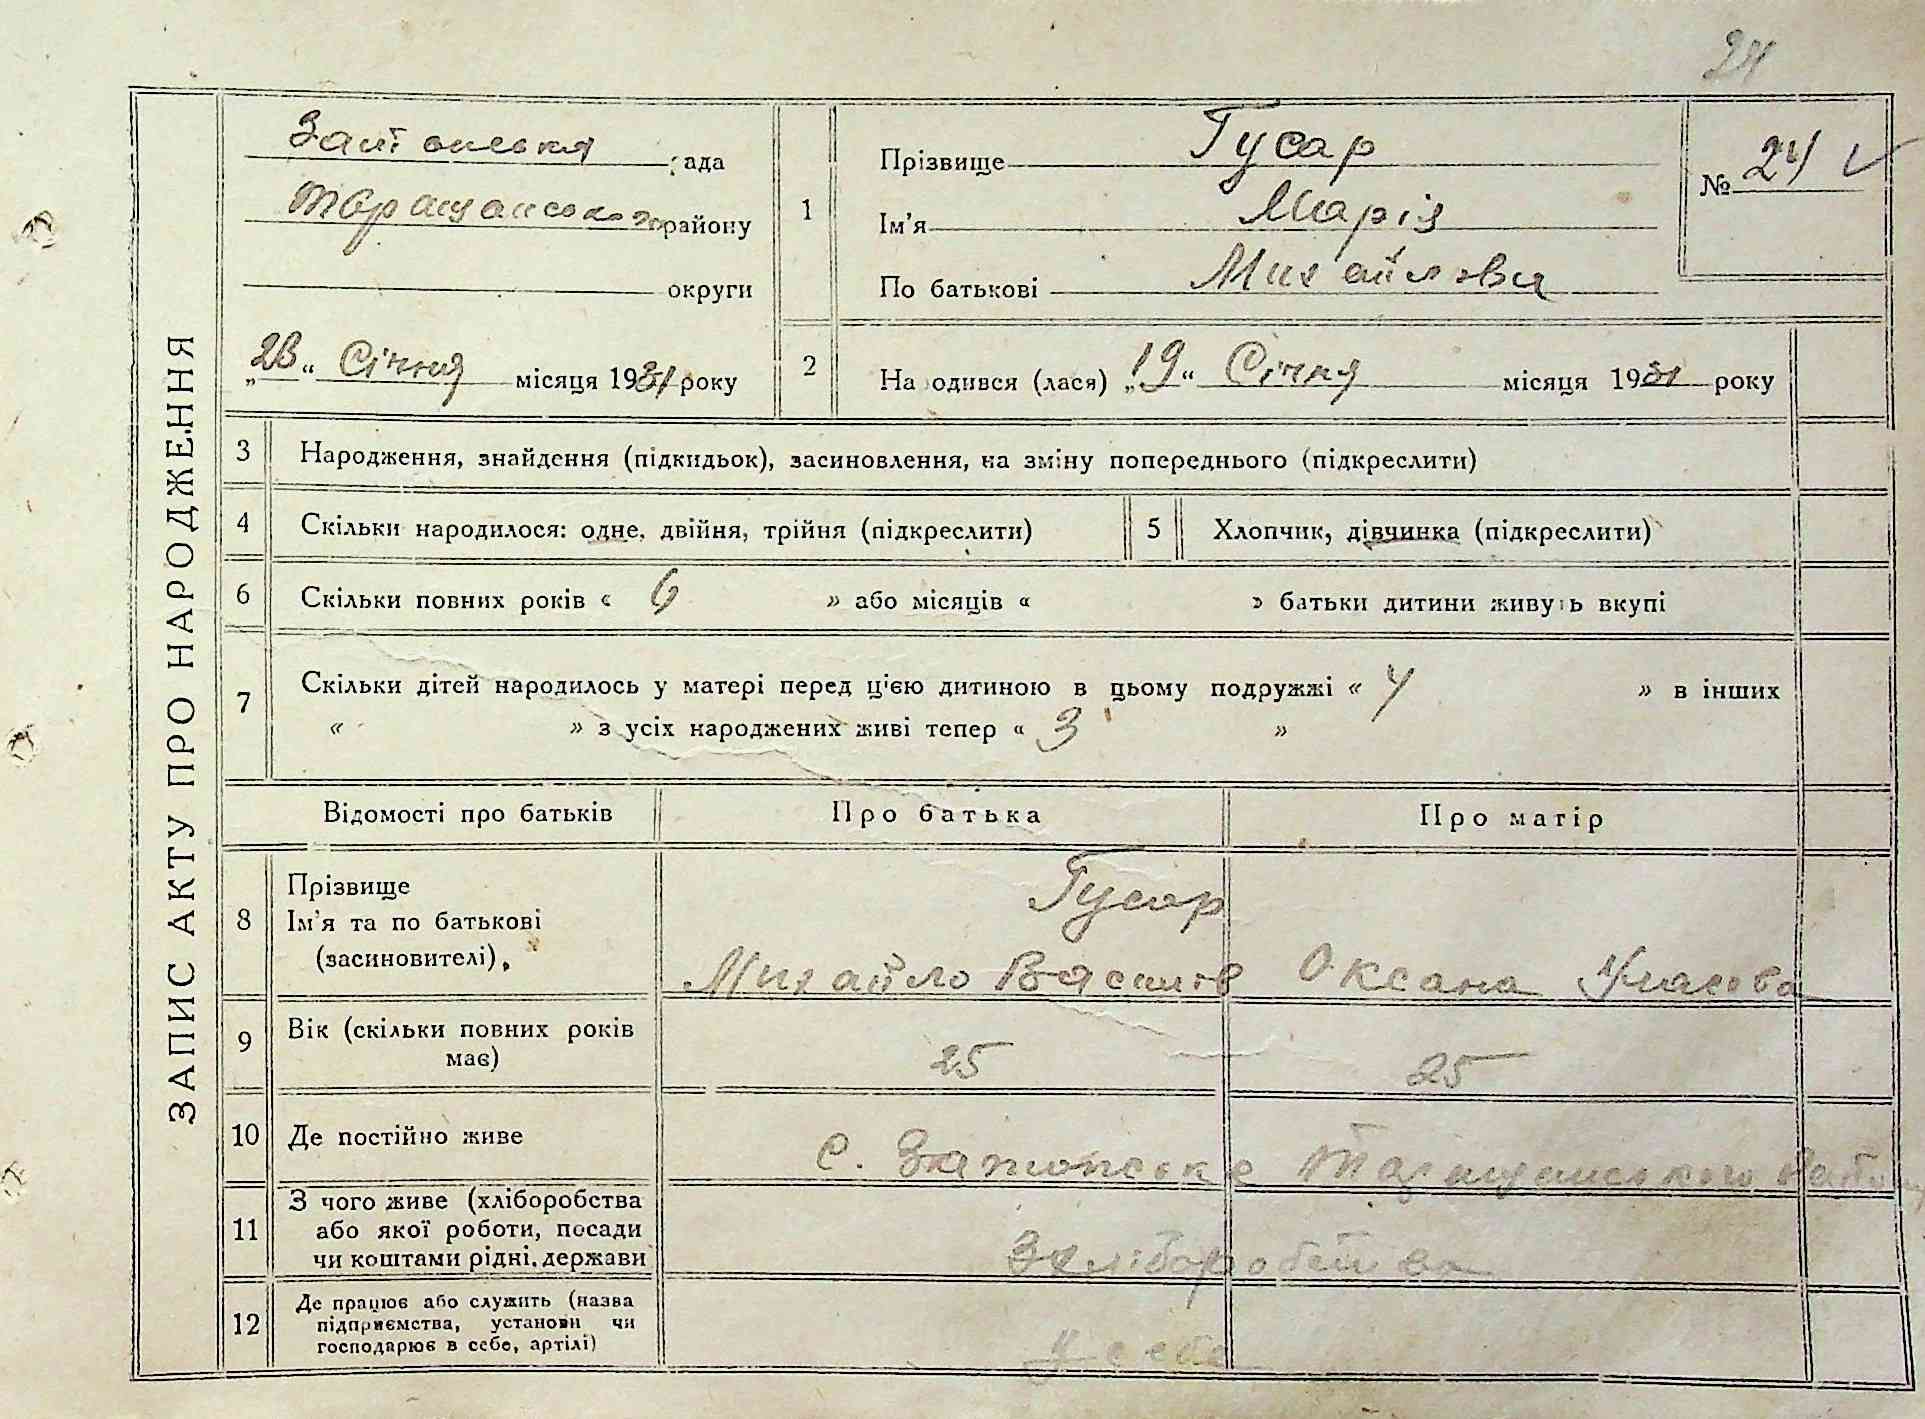 24
ЗАПИС АКТУ ПРО НАРОДЖЕННЯ
рада
Таращанського району
округи
"23" Січня місяця 1931 року
1
Прізвище Гусар
Ім'я Марія
По батькові Михайлова
№ 24
2
На одився (лася) "19" Січня місяця 1931 року
3 Народження, знайдення (підкидьок), засиновлення, на зміну попереднього (підкреслити)
4 Скільки народилося: одне, двійня, трійня (підкреслити)
5 Хлопчик, дівчинка (підкреслити)
6 Скільки повних років « 6 » або місяців « » батьки дитини живуть вкупі
7 Скільки дітей народилось у матері перед цією дитиною в цьому подружжі « 4 » в інших
« » з усіх народжених живі тепер « 3 »
Відомості про батьків Про батька Про матір
8 Прізвище
Ім'я та по батькові
(засиновителі).
Гусар
Михайло Васильів Оксана Уласова
9 Вік (скільки повних років
має)
25 25
10 Де постійно живе
с. Таращанського Району
11 З чого живе (хліборобства
або якої роботи, посади
чи коштами рідні, держави
З хліборобства
12 Де працює або служить (назва
підприємства, установи чи
господарює в себе, артілі)
у себе